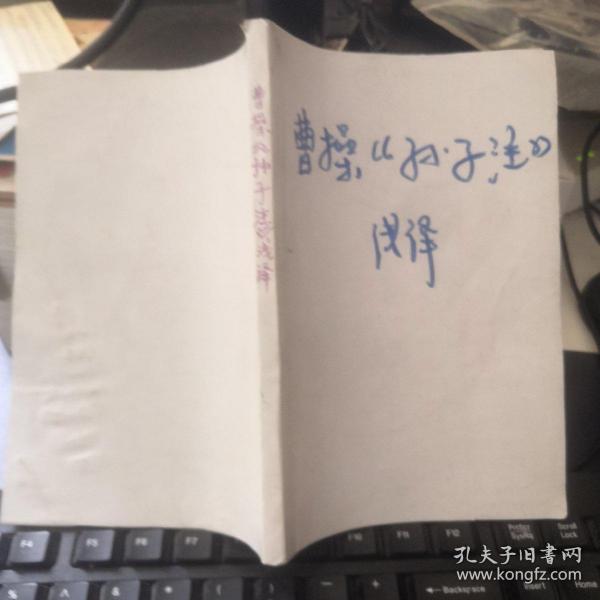 曹操《孙子注》
浅译
曹操《孙子注》浅译
F4 F5 F6 F7 F8 F10 F11 F12 PrtScr SysRq Scroll Lock
Backspace Insert Home
孔夫子旧书网
www.kongfz.com